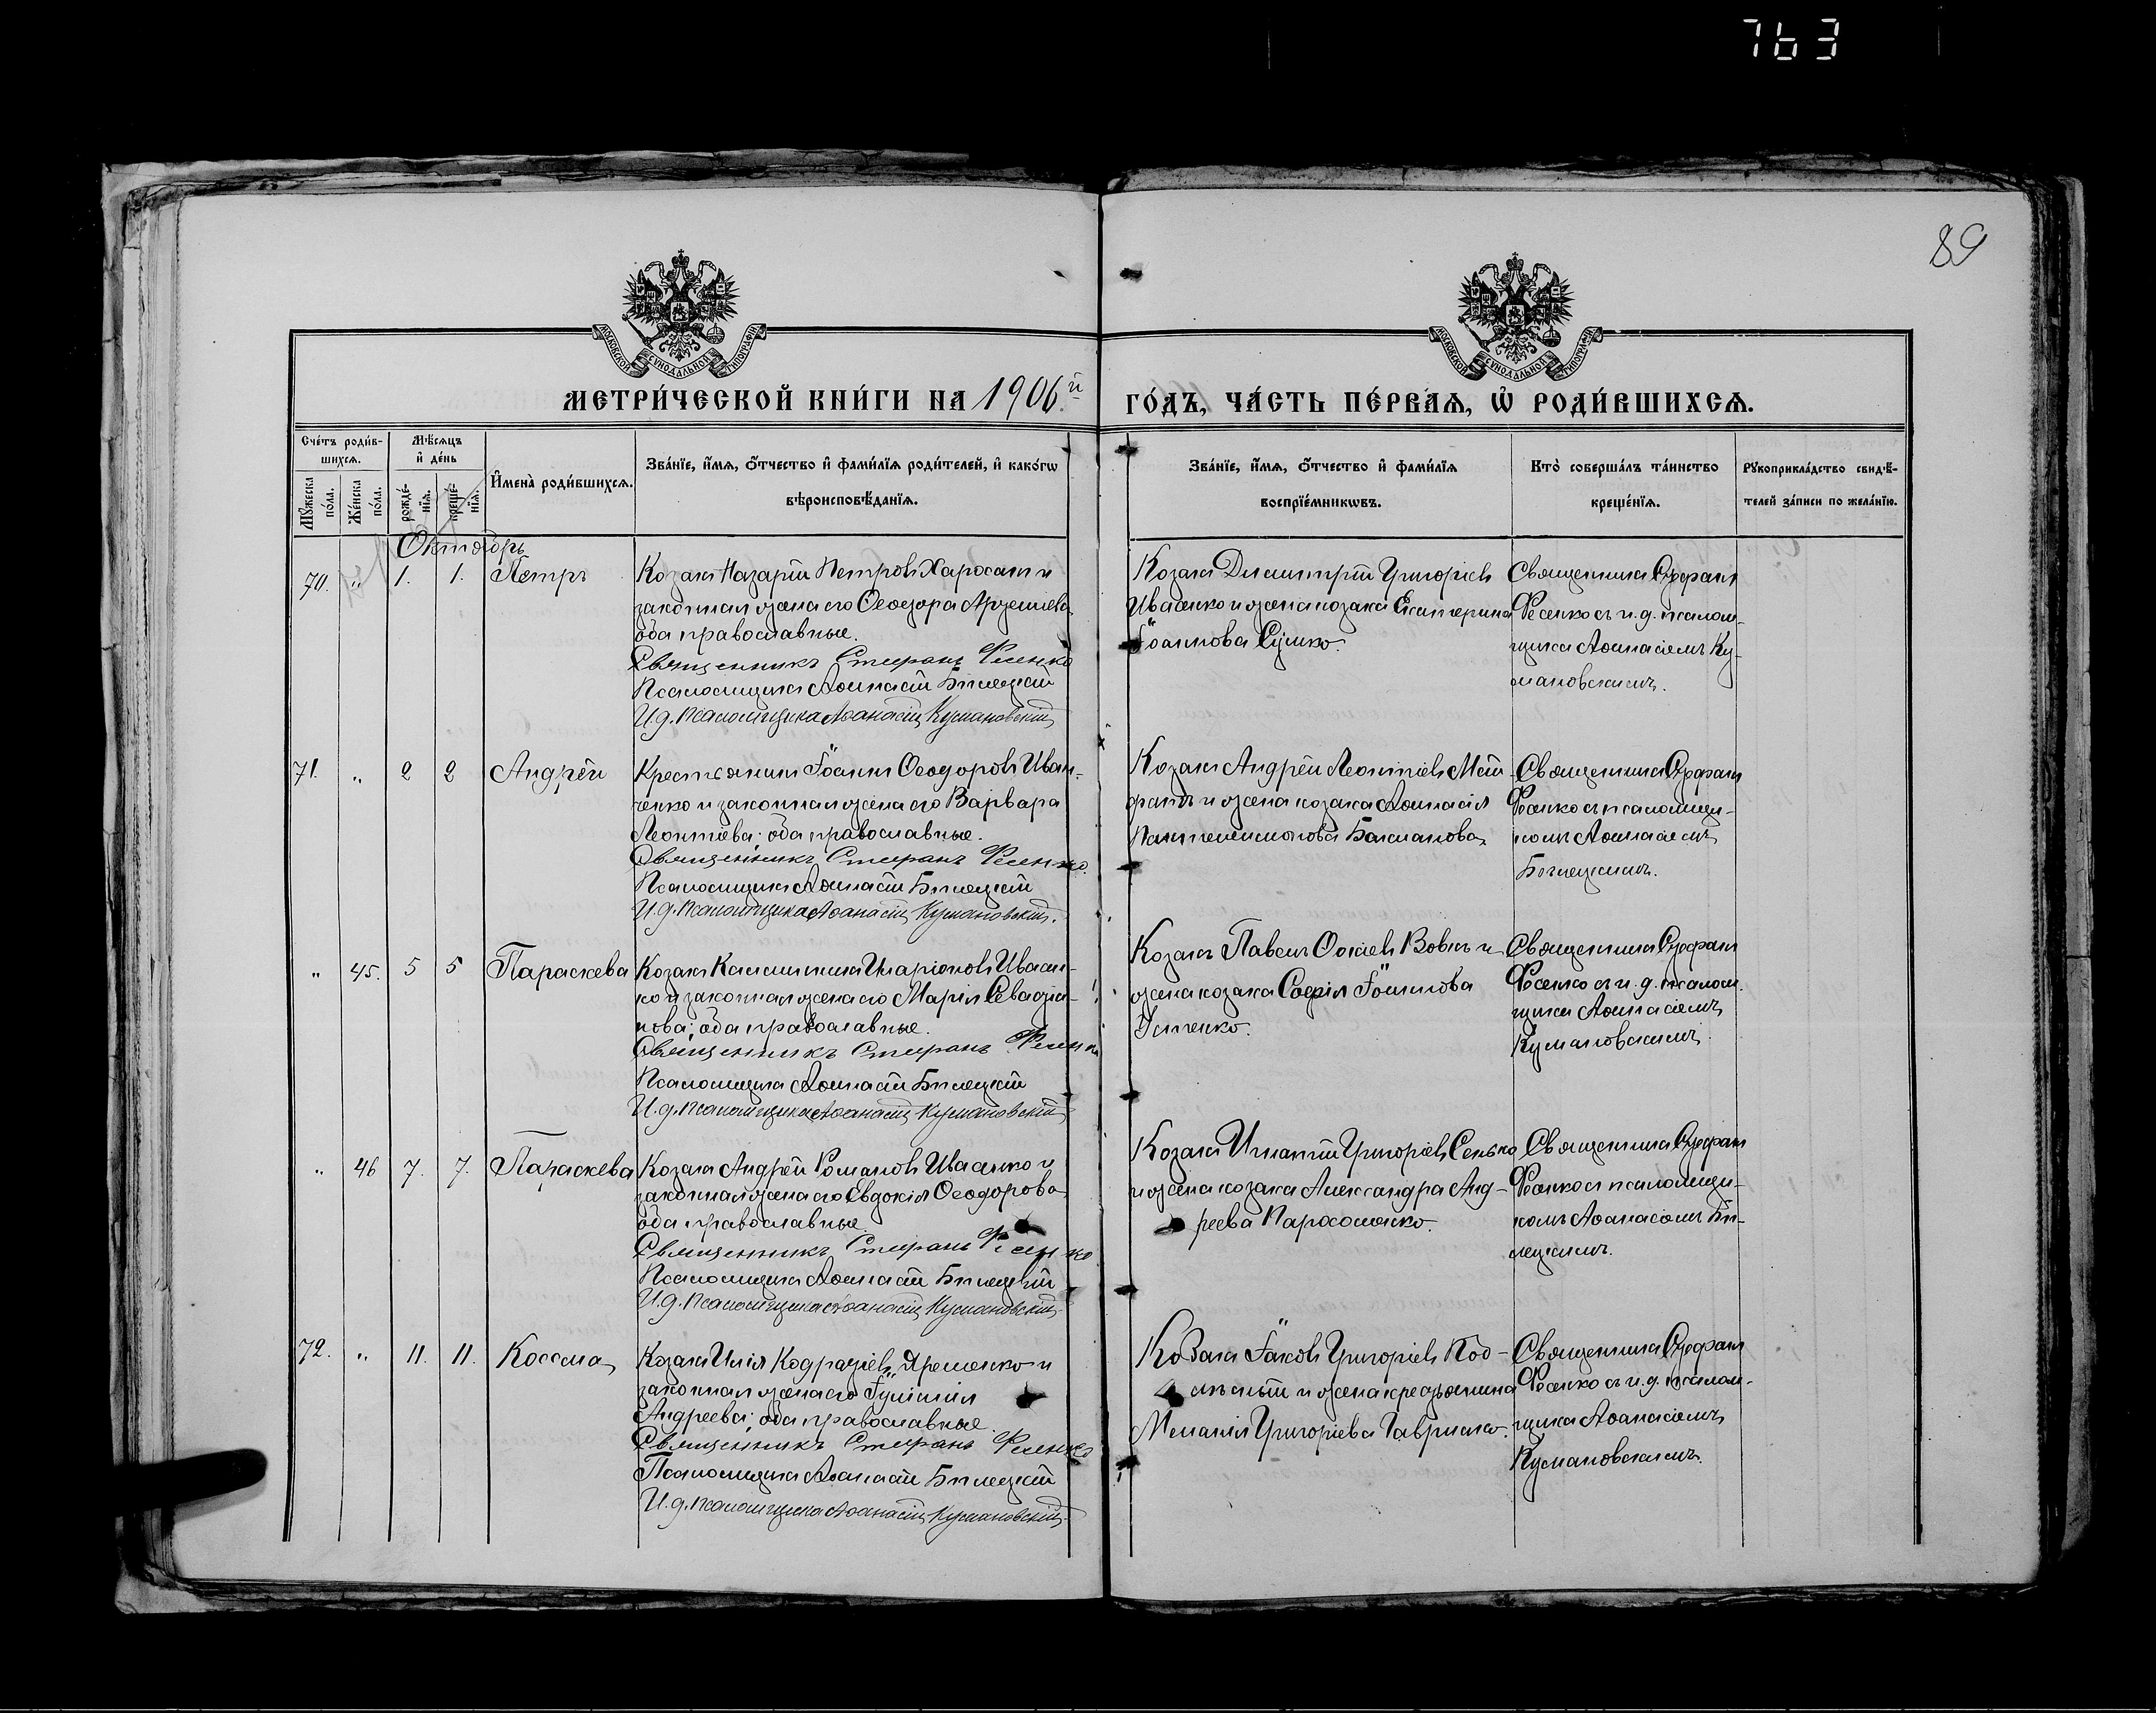 763
89
МОСКОВСКОЙ СѴНОДАЛЬНОЙ ТИПОГРАФІИ
МОСКОВСКОЙ СѴНОДАЛЬНОЙ ТИПОГРАФІИ
МЕТРИ́ЧЕСКОЙ КНИ́ГИ НА 1906.й ГО́ДЪ, ЧА́СТЬ ПЕ́РВАѦ, Ѡ҆ РОДИ́ВШИХСѦ.
Сче́тъ роди́в-
шихсѧ.
Мꙋ́жеска по́ла.
Же́нска по́ла.
Мѣ́сѧцъ
и҆ де́нь
рожде́-нїѧ.
креще́-нїѧ.
И҆мена̀ роди́вшихсѧ.
Зва́нїе, и҆́мѧ, ѻ҆́тчество и҆ фами́лїѧ роди́телей, и҆ како́гѡ
вѣроисповѣ́данїѧ.
Зва́нїе, и҆́мѧ, ѻ҆́тчество и҆ фами́лїѧ
воспрїе́мникѡвъ.
Кто̀ соверша́лъ та́инство
креще́нїѧ.
Рꙋкоприкла́дство свидѣ́-
телей за́писи по жела́нїю.
Октябрь
70. " 1. 1. Петръ
Козакъ Назарій Петровъ и
законная жена его Ѳеодора
оба православные.
Священникъ Стефанъ Фесенко
Псаломщикъ Аѳанасій Билецкій
И.д. псаломщика Аѳанасій Кумановскій
Козакъ Димитрій Григоріевъ
Иваненко и жена козака Екатерина
Іоаннова Сушко.
Священникъ Стефанъ
Фесенко съ и.д. псалом-
щика Аѳанасіемъ Ку-
мановскимъ.
71. " 2 2 Андрей
Крестьянинъ Іоаннъ Ѳеодоровъ Иван-
ченко и законная жена его Варвара
Леонтіева; оба православные.
Священникъ Стефанъ Фесенко.
Псаломщикъ Аѳанасій Билецкій
И.д. псаломщика Аѳанасій Кумановскій.
Козакъ Андрей Леонтіевъ
и жена козака Аѳанасія
Пантелеимонова
Священникъ Стефанъ
Фесенко съ псаломщи-
комъ Аѳанасіемъ
Билецкимъ.
" 45. 5 5 Параскева
Козакъ Каллиникъ Иларіоновъ Иваен-
ко и законная жена его Марія Севастіа-
нова; оба православные.
Священникъ Стефанъ Фесенко
Псаломщикъ Аѳанасій Билецкій
И.д. псаломщика Аѳанасій Кумановскій
Козакъ Павелъ Вовкъ и
жена козака Софія Іоаннова
Устенко.
Священникъ Стефанъ
Фесенко съ и.д. псалом-
щика Аѳанасіемъ
Кумановскимъ.
" 46 7. 7. Параскева
Козакъ Андрей Романовъ Иваенко и
законная жена его Евдокія Ѳеодорова
оба православные.
Священникъ Стефанъ Фесенко
Псаломщикъ Аѳанасій Билецкій
И.д. псаломщика Аѳанасій Кумановскій.
Козакъ Игнатій Григоріевъ Сенько
и жена козака Александра Анд-
реева
Священникъ Стефанъ
Фесенко съ псаломщи-
комъ Аѳанасіемъ Би-
лецкимъ.
72. " 11. 11. Космa
Козакъ Илія Кодратіевъ Яременко и
законная жена его Іуліанія
Андреева; оба православные.
Священникъ Стефанъ Фесенко
Псаломщикъ Аѳанасій Билецкій
И.д. псаломщика Аѳанасій Кумановскій.
Козакъ Іаковъ Григоріевъ Под-
и жена крестьянина
Меланія Григоріева Гаврилко.
Священникъ Стефанъ
Фесенко съ и.д. псалом-
щика Аѳанасіемъ
Кумановскимъ.